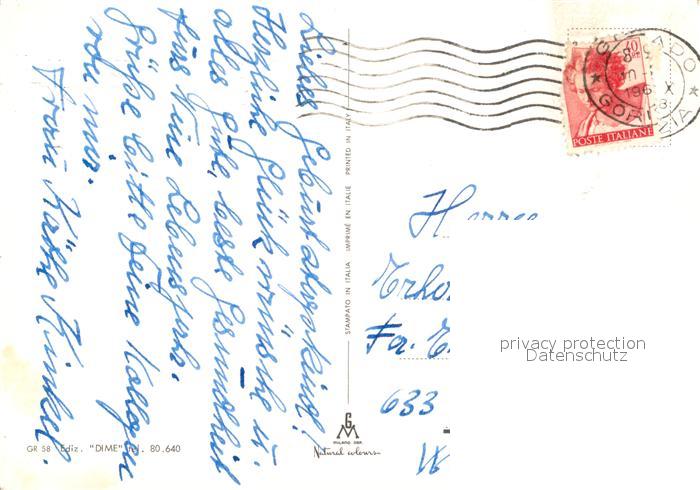 Liebes Geburtstagskind!
Herzliche Glückwünsche u.
alles Gute, beste Gesundheit
fürs Neue Lebensjahr.
Grüße bitte Deine Kollegen
von mir.
Frau Käthe
GR 58 Ediz. "DIME" 80.640
STAMPATO IN ITALIA IMPRIMÉ EN ITALIE PRINTED IN ITALY
GM
MILANO DEP.
Natural colours
POSTE ITALIANE
GORIZIA
Fa.
633
W
privacy protection
Datenschutz